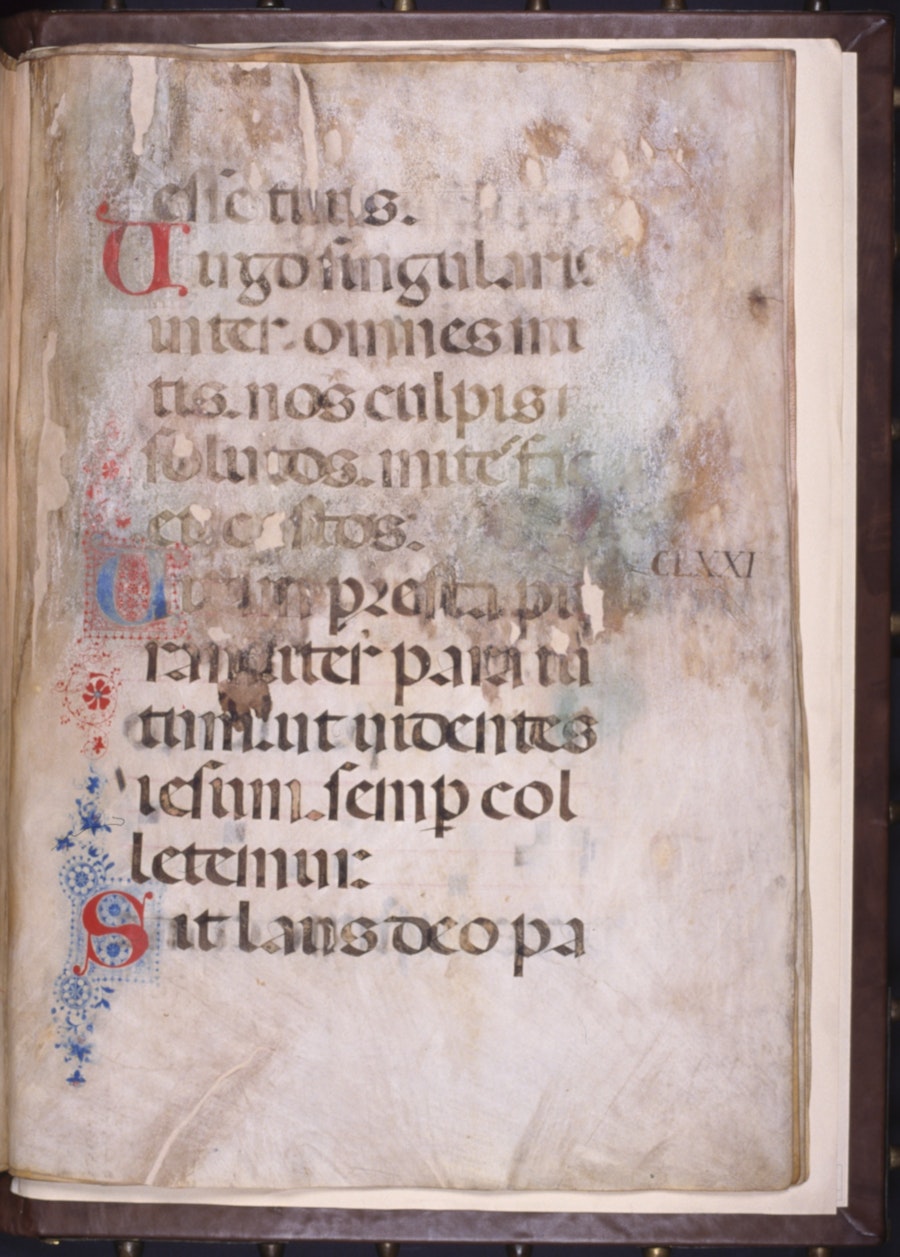 esse tuus.
Uirgo singularis
inter omnes mi
tis. nos culpis
solutos. mites fac
et castos:
Uitam presta pu
ram iter para tu
tum. ut uidentes
iesum. semp col
letemur:
CLXXI
Sit laus deo pa